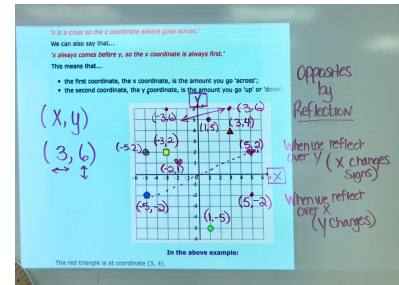 'x is a cross so the x coordinate always goes across.'
We can also say that...
'x always comes before y, so the x coordinate is always first.'
This means that...
• the first coordinate, the x coordinate, is the amount you go 'across';
• the second coordinate, the y coordinate, is the amount you go 'up' or 'down'.
(x,y)
(3,6)
Y
(-3,6)
(3,6)
(1,5)
(3,4)
(-5,2)
(-3,2)
(5,2)
(-2,1)
X
(-5,-2)
(5,-2)
(1,-5)
Opposites
by
Reflection
When we reflect
over Y (X changes
signs)
When we reflect
over X
(Y changes)
In the above example:
The red triangle is at coordinate (3, 4).